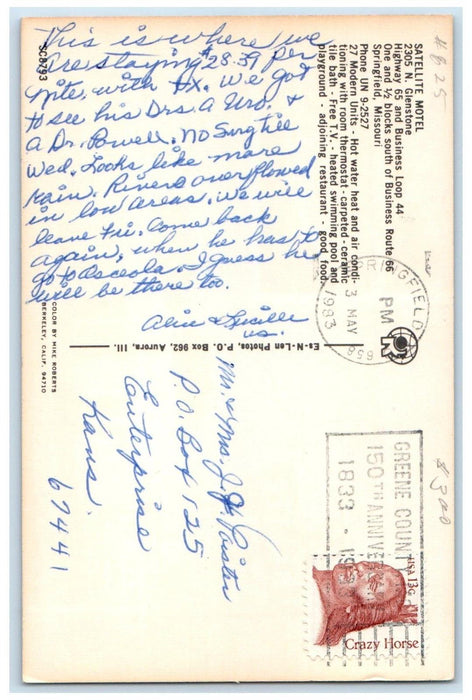 This is where we
are staying $28.39 per
nite, with tx. We got
to see his Drs. a Uro. &
a Dr. Powell. No Surg till
Wed. Looks like more
rain. Rivers overflowed
in low areas. We will
leave Fri. Come back
again, when he has to
go to Osceola. I guess he
will be there too.
Alice & Lucille
SC8793
SATELLITE MOTEL
2305 N. Glenstone
Highway 65 and Business Loop 44
One and ½ blocks south of Business Route 66
Springfield, Missouri
Phone UN 9-2527
27 Modern Units - Hot water heat and air condi-
tioning with room thermostat - carpeted - ceramic
tile bath - Free T.V. - heated swimming pool and
playground - adjoining restaurant - good food.
COLOR BY MIKE ROBERTS
BERKELEY, CALIF. 94710
Es-N-Len Photos, P.O. Box 962, Aurora, Ill.
PM
3 MAY
1983
658
GREENE COUNTY
150TH ANNIVE
1833 - 19
USA 13c
Crazy Horse
Mr. & Mrs. J.
P.O. Box 125
Enterprise
Kans.
67441
$3.00